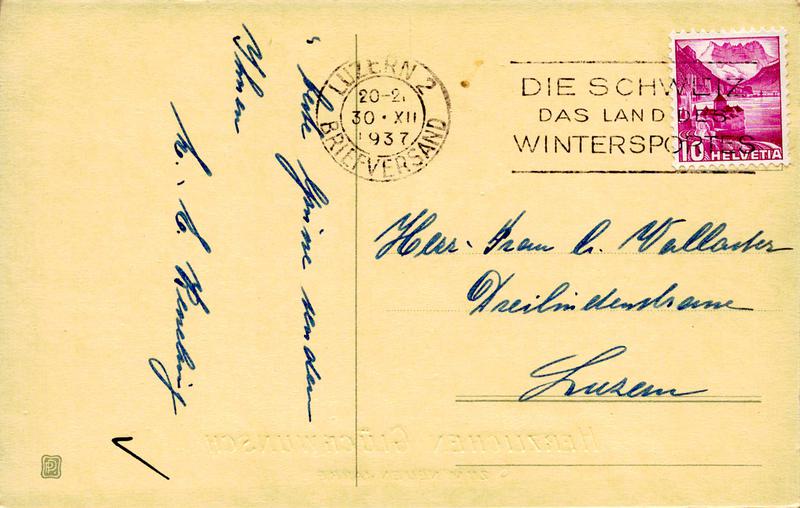 LUZERN 2
20-2
30·XII
1937
BRIEFVERSAND
DIE SCHWEIZ
DAS LAND DES
WINTERSPORTES
10 HELVETIA
Herr. Frau C. Wallacher
Dreilindenstrasse
Luzern
Grüsse senden
Ihnen
HERZLICHEN GLÜCKWUNSCH
ZUM NEUEN JAHRE